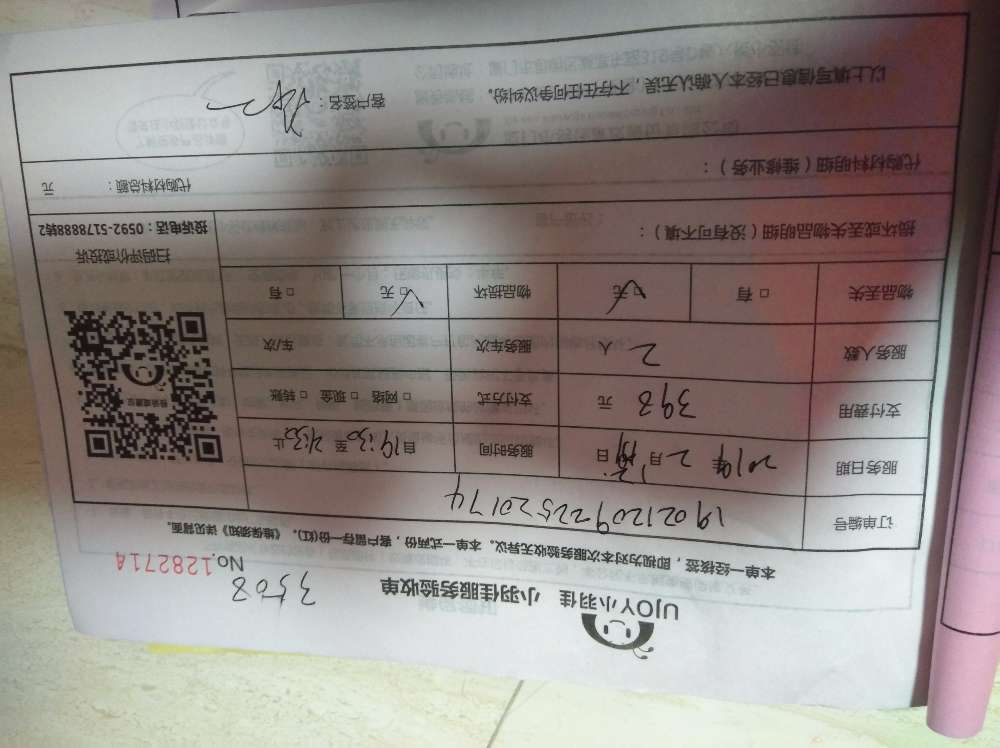 UJOY小羽佳 小羽佳服务验收单
3508
No.1282714
本单一经接签，即视为对本次服务验收无异议。本单一式两份，客户留存一份(红)。《维保须知》详见背面。
订单编号 1902120922520174
服务日期 2019年 2月 日 服务时间 自19:30至21:30止
支付费用 398 元 支付方式 □网络 □现金 □转账
服务人数 2 人 服务车次 车/次
物品丢失 □有 □无 物品损坏 □无 □有
损坏或丢失物品明细（没有可不填）：
扫码评价或投诉
投诉电话：0592-5178888转2
代购材料明细（维修业务）： 代购材料总额： 元
以上填写信息已经本人确认无误，不存在任何争议纠纷。 客户签名：